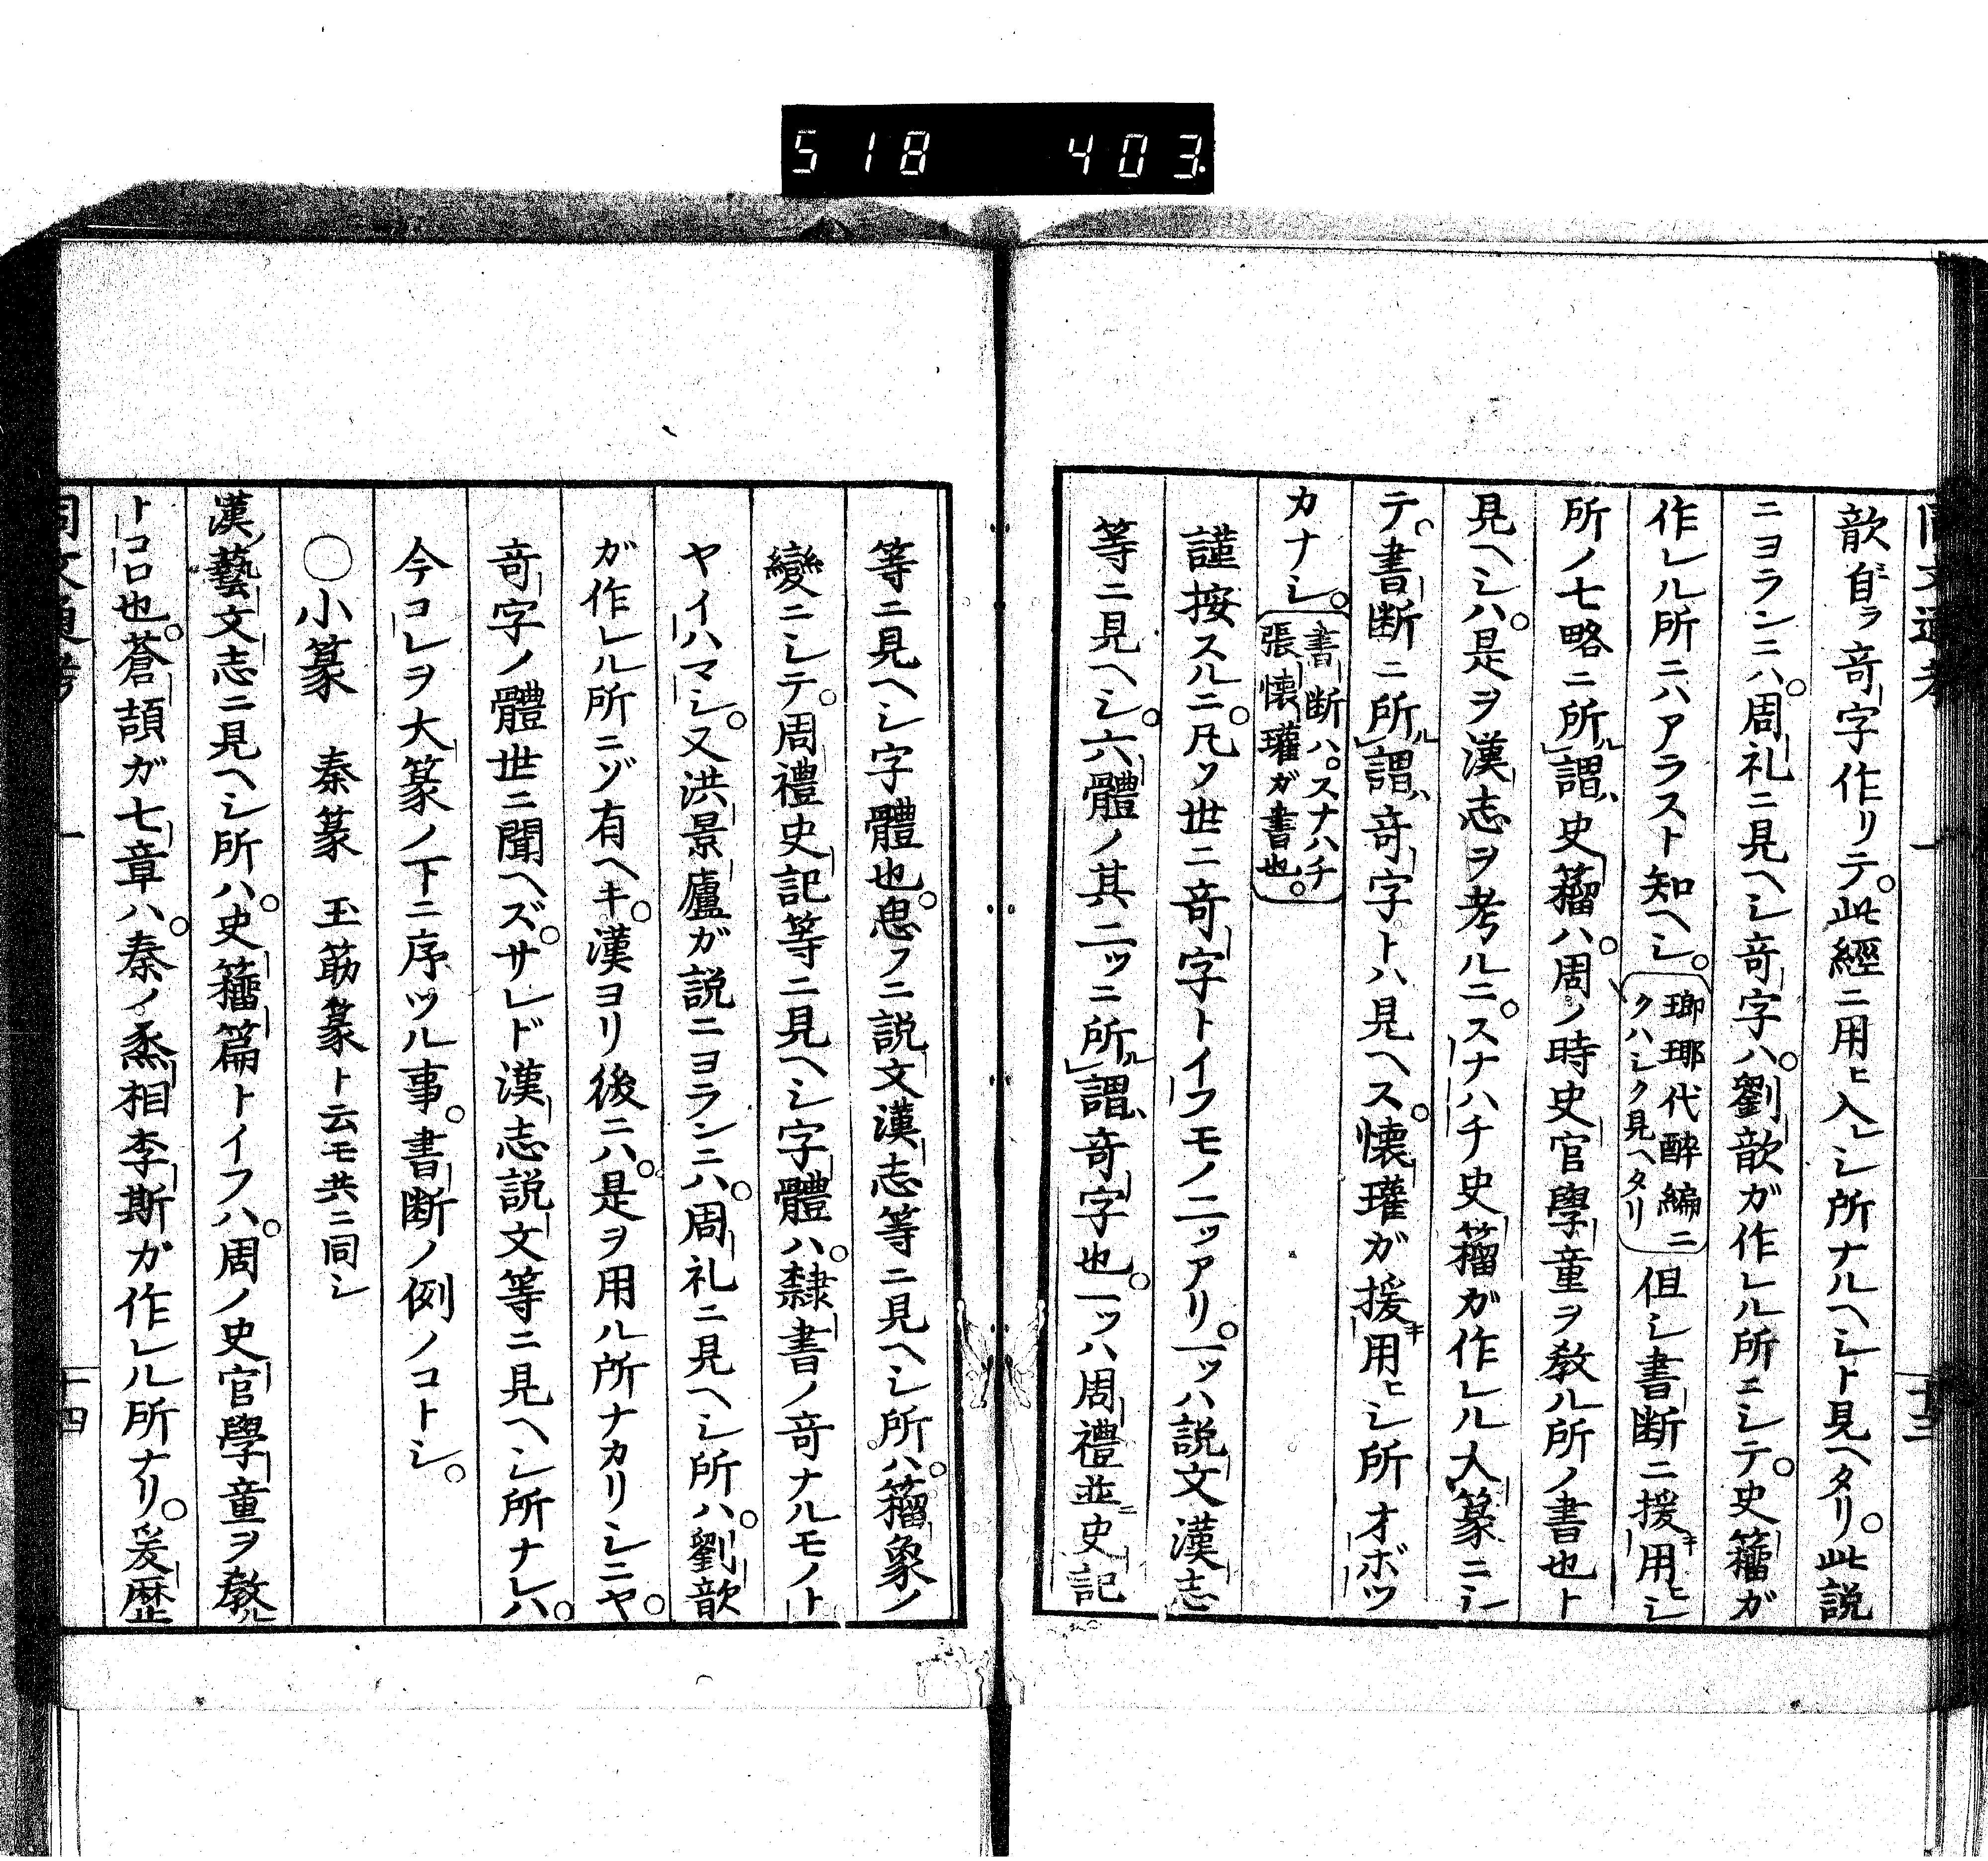 518 403
歆自ラ竒字作リテ。此經ニ用ヒ入レシ所ナルヘシト見ヘタリ。此説
ニヨランニハ。周礼ニ見ヘシ竒字ハ。劉歆ガ作レル所ニシテ。史籀ガ
作レル所ニハアラスト知ヘシ。
瑯琊代醉編ニ
クハシク見ヘタリ
但シ書断ニ援キ用ヒシ
所ノ七略ニ所ル謂ハ史籀ハ。周ノ時史官學童ヲ教ル所ノ書也ト
見ヘシハ。是ヲ漢志ヲ考ルニ。スナハチ史籀ガ作レル大篆ニシ
テ。書断ニ所ル謂ハ竒字トハ見ヘス。懐瓘ガ援キ用ヒシ所オボツ
カナシ。
書断ハ。スナハチ
張懐瓘ガ書也。
謹按スルニ。凡ソ世ニ竒字トイフモノ二ッアリ。一ッハ説文漢志
等ニ見ヘシ。六體ノ其二ッニ所ル謂ハ竒字也。一ッハ周禮並ニ史記
等ニ見ヘシ字體也。思フニ説文漢志等ニ見ヘシ所ハ。籀象ノ
變ニシテ。周禮史記等ニ見ヘシ字體ハ。隸書ノ竒ナルモノト
ヤイハマシ。又洪景盧ガ説ニヨランニハ。周礼ニ見ヘシ所ハ。劉歆
ガ作レル所ニゾ有ヘキ。漢ヨリ後ニハ。是ヲ用ル所ナカリシニヤ。
竒字ノ體世ニ聞ヘズ。サレド漢志説文等ニ見ヘシ所ナレハ。
今コレヲ大篆ノ下ニ序ツル事。書断ノ例ノコトシ。
〇小篆 秦篆 玉筯篆ト云モ共ニ同シ
漢藝文志ニ見ヘシ所ハ。史籀篇トイフハ。周ノ史官學童ヲ教ル
トコロ也。蒼頡ガ七章ハ。秦ノ烝相李斯ガ作レル所ナリ。爰歴
同文通考 一 十四